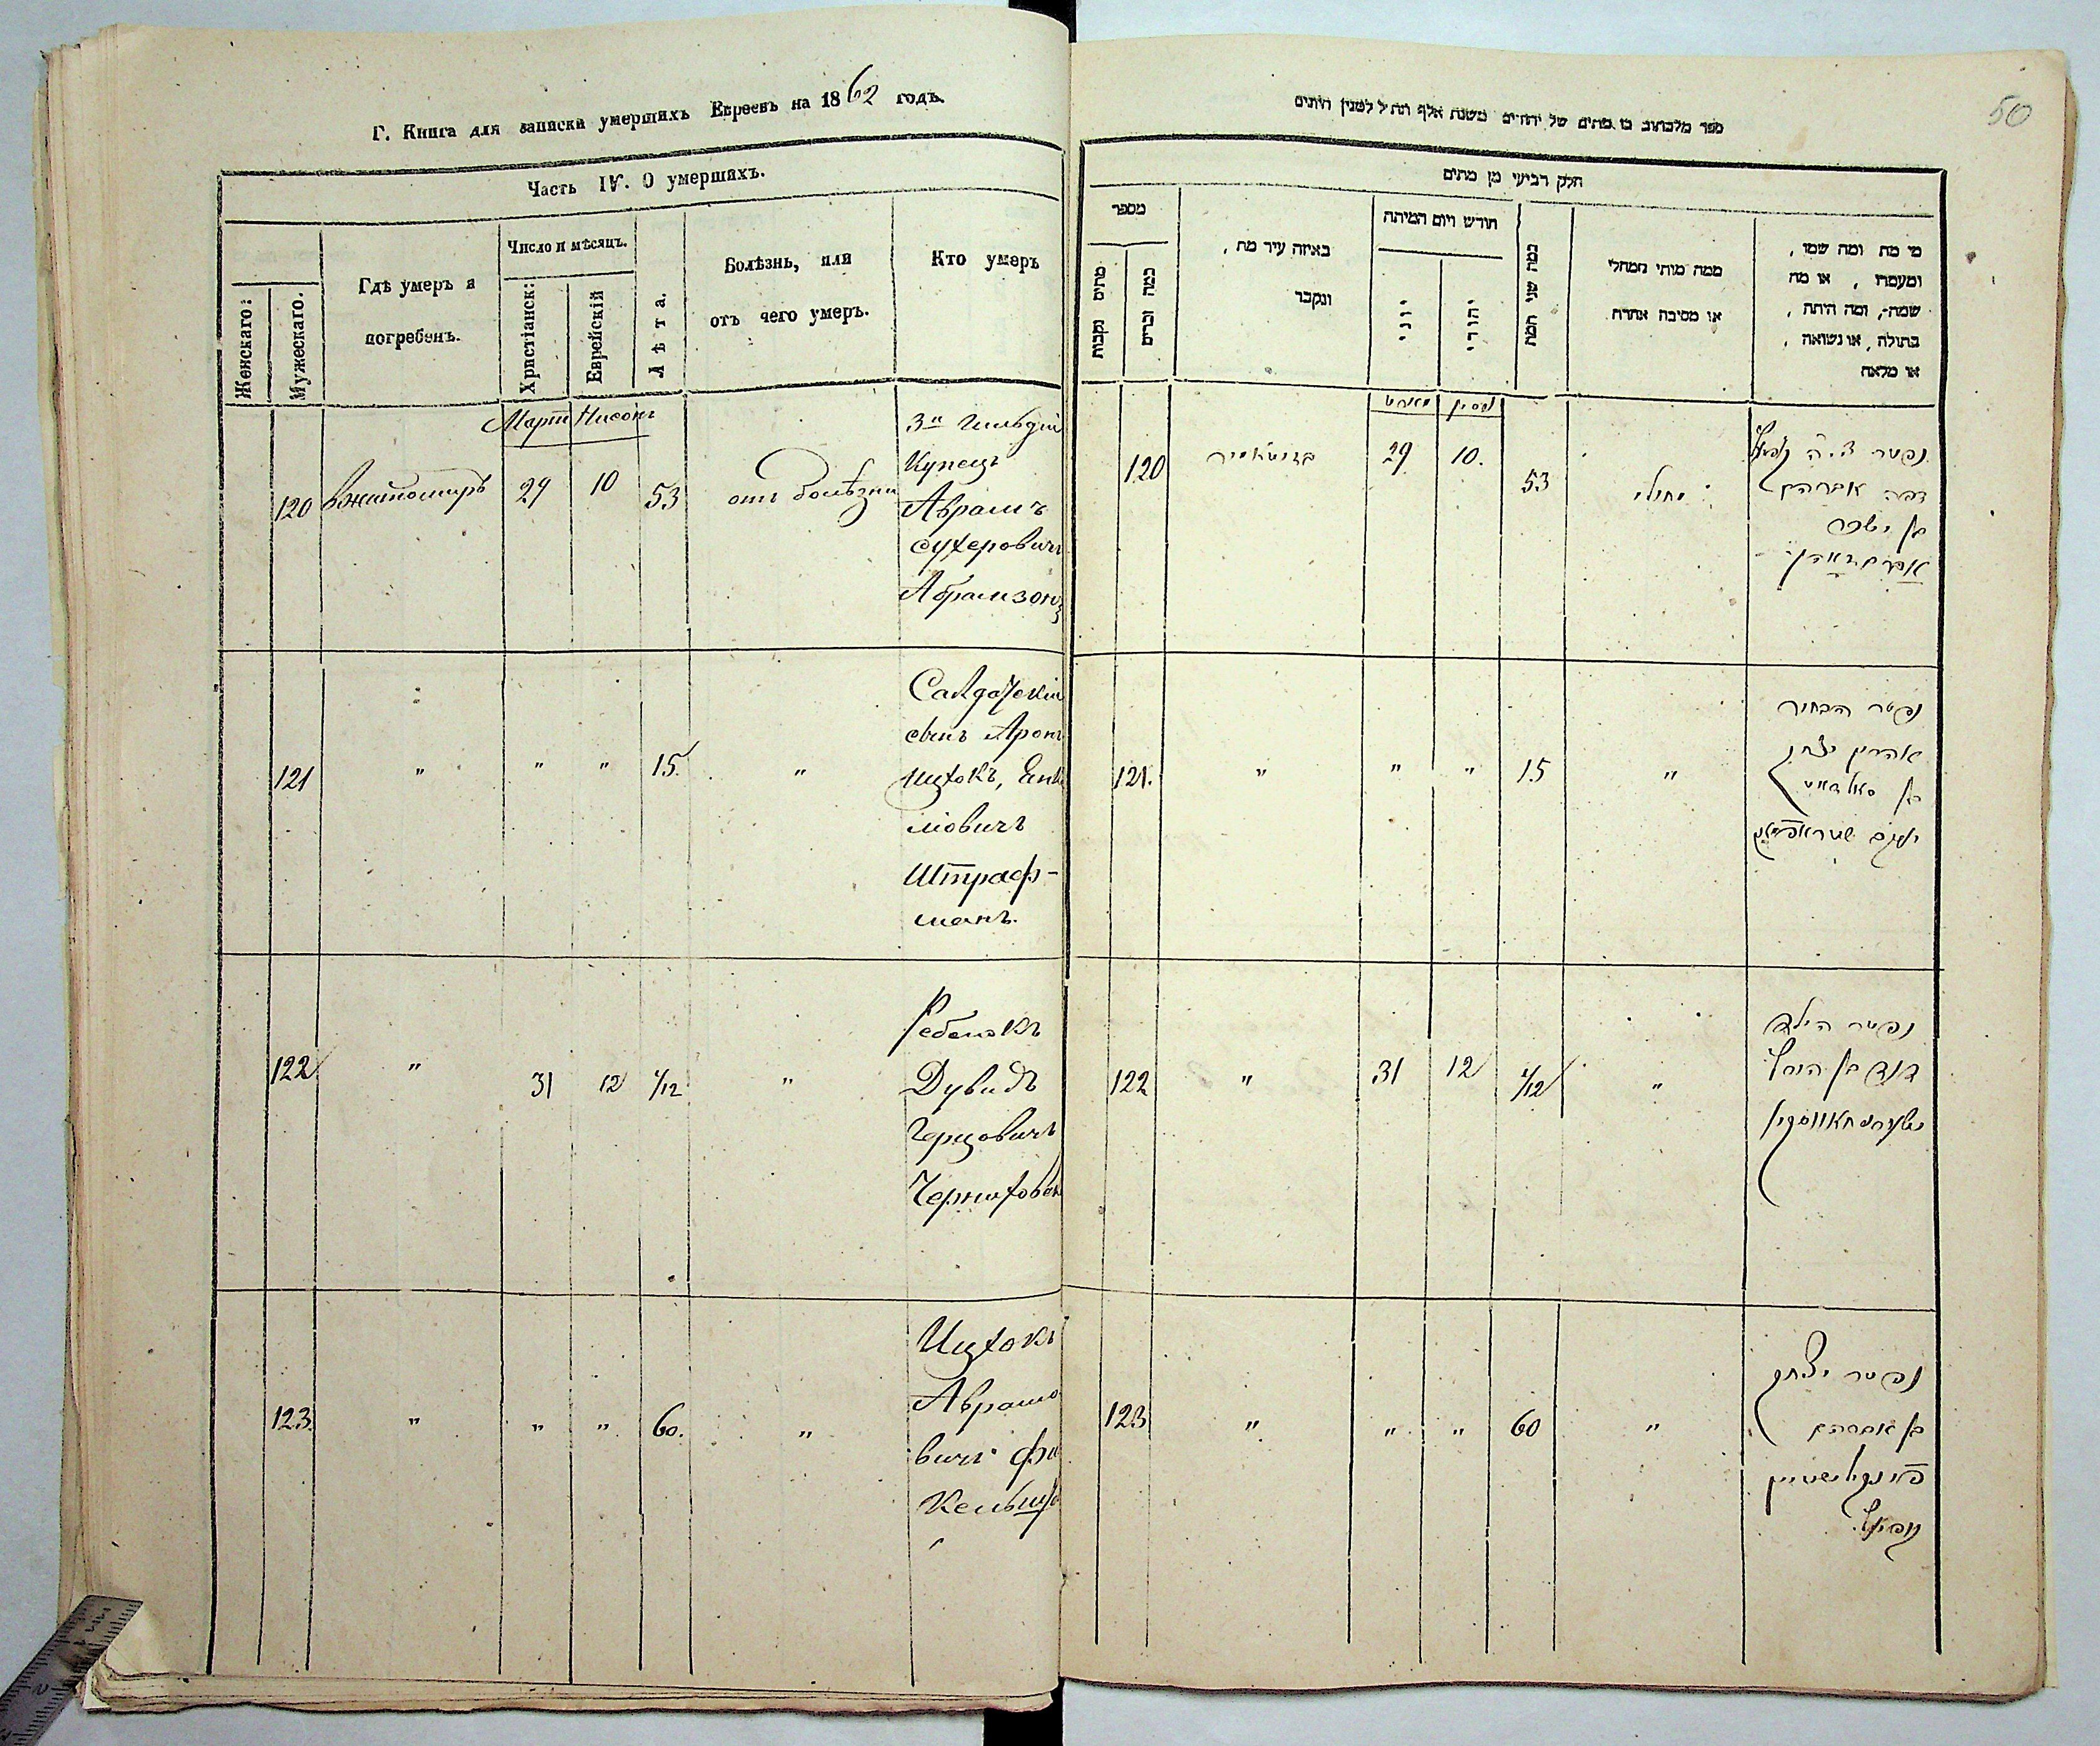 Г. Книга для записки умершихъ Евреевъ на 1862 годъ.
Часть IV. О умершихъ.
Женскаго:
Мужескаго.
Гдѣ умеръ и
погребенъ.
Число и мѣсяцъ.
Христіанск:
Еврейскій
Лѣта.
Болѣзнь, или
отъ чего умеръ.
Кто умеръ
Март Нисонъ
120 Вжитомиръ 29 10 53 отъ болѣзни
3й Гильдіи
Купецъ
Аврамъ
Сухеровичъ
Абрамзонъ
121 " " " 15. "
сынъ Аронъ
Ицхокъ,
мовичъ
Штраф-
манъ.
122 " 31 12 1/12 "
Ребенокъ
Дувидъ
Герцовичъ
123. " " " 60. "
Ицхокъ
Аврамо
вичъ Фи
кельшт
50
ספר מלכתוב בו מתים של יהודים משנת אלף תת״ל למנין היונים
חלק רביעי מן מתים
מספר
מתים נקבות
כמה זכרים
באיזה עיר מת,
ונקבר
חודש ויום המיתה
יוני
יהודי
כמה שני המת
ממה מותי ממחלי
או מסיבה אחרת
מי מת ומה שמו,
ומעמדו, או מה
שמה, ומה היתה,
בתולה, או נשואה,
או מלאה
מארט ניסן
120 בזיטאמיר 29 10. 53 מחולי
נפטר
אברהם
בן ישכר
אבראמזאהן
121. " " " 15 "
נפטר הבחור
אהרון יצחק
בן סאלדאט
חיים שטראפמאן
122 " 31 12 1/12 "
נפטר הילד
דוד בן הירץ
123 " " " 60 "
נפטר יצחק
בן אברהם
פינקילשטיין